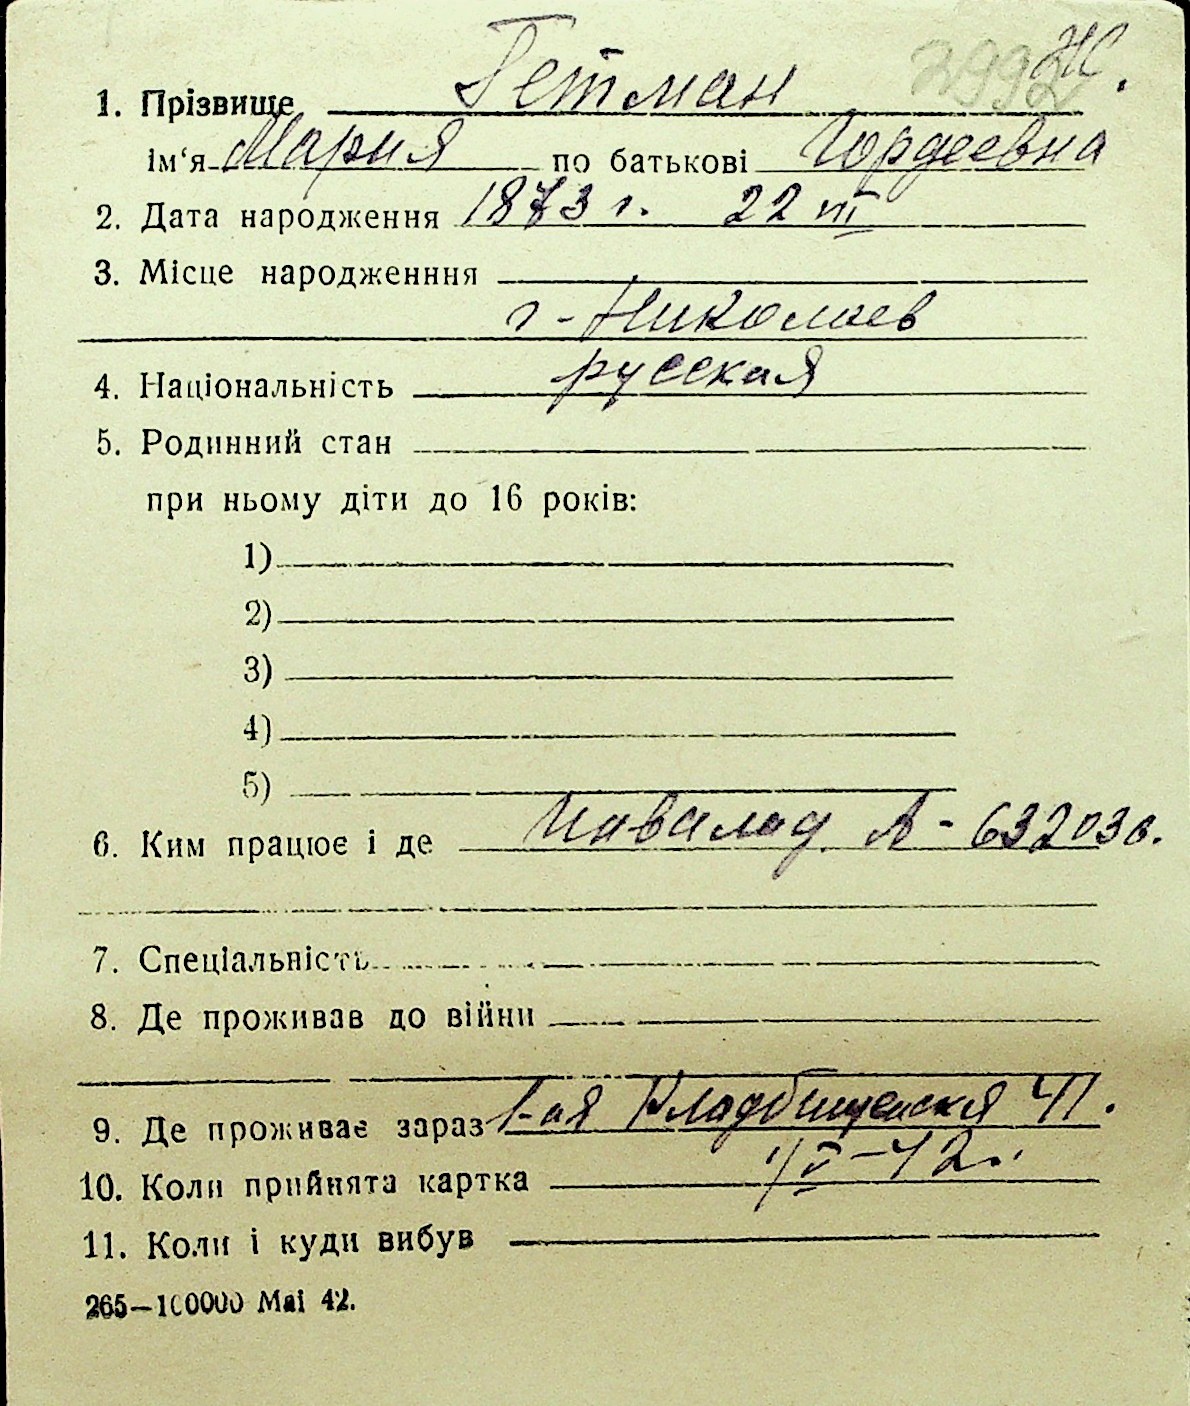 Ж.
2992
1. Прізвище Гетман
ім'я Мария по батькові Гордеевна
2. Дата народження 1873 г. 22 III
3. Місце народженння
г. Николаев
4. Національність русская
5. Родинний стан
при ньому діти до 16 років:
1)
2)
3)
4)
5)
6. Ким працює і де Инвалид. А-632036.
7. Спеціальність
8. Де проживав до війни
9. Де проживає зараз 1-ая Кладбищенская 41.
10. Коли прийнята картка V-42.
11. Коли і куди вибув
265—100000 Mai 42.